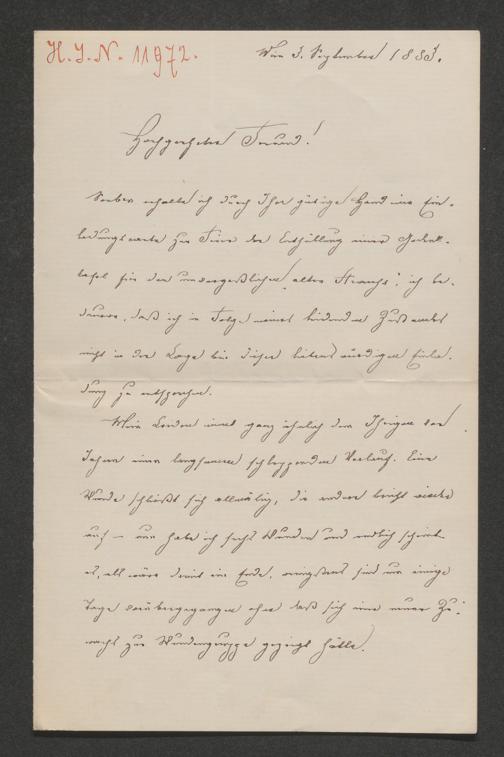 H. I. N. 11972.
Wien 3. September 1883.
Hochgeehrter Freund!
Soeben erhalte ich durch Ihre gütige Hand eine Ein-
ladungskarte zur Feier der Enthüllung einer Gedenk-
tafel für den unvergeßlichen „alten Strauß“; ich be-
dauere, daß ich in Folge meines leidenden Zustandes
nicht in der Lage bin dieser liebenswürdigen Einla-
dung zu entsprechen.
Mein Leiden nimmt ganz ähnlich dem Ihrigen vor
Jahren einen langsamen schleppenden Verlauf. Eine
Wunde schließt sich allmälig, die andere bricht wieder
auf – nun habe ich sechs Wunden und endlich scheint
es, als wäre damit ein Ende, wenigstens sind nun einige
Tage vorübergegangen ohne daß sich eine neuer Zu-
wachs zur Wundengruppe gezeigt hätte.